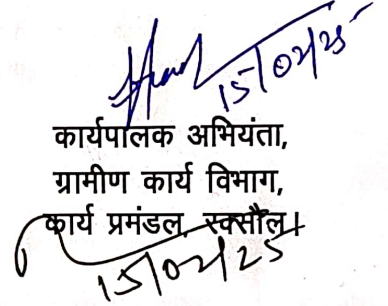 15/02/25
कार्यपालक अभियंता,
ग्रामीण कार्य विभाग,
कार्य प्रमंडल, रक्सौल।
15/02/25